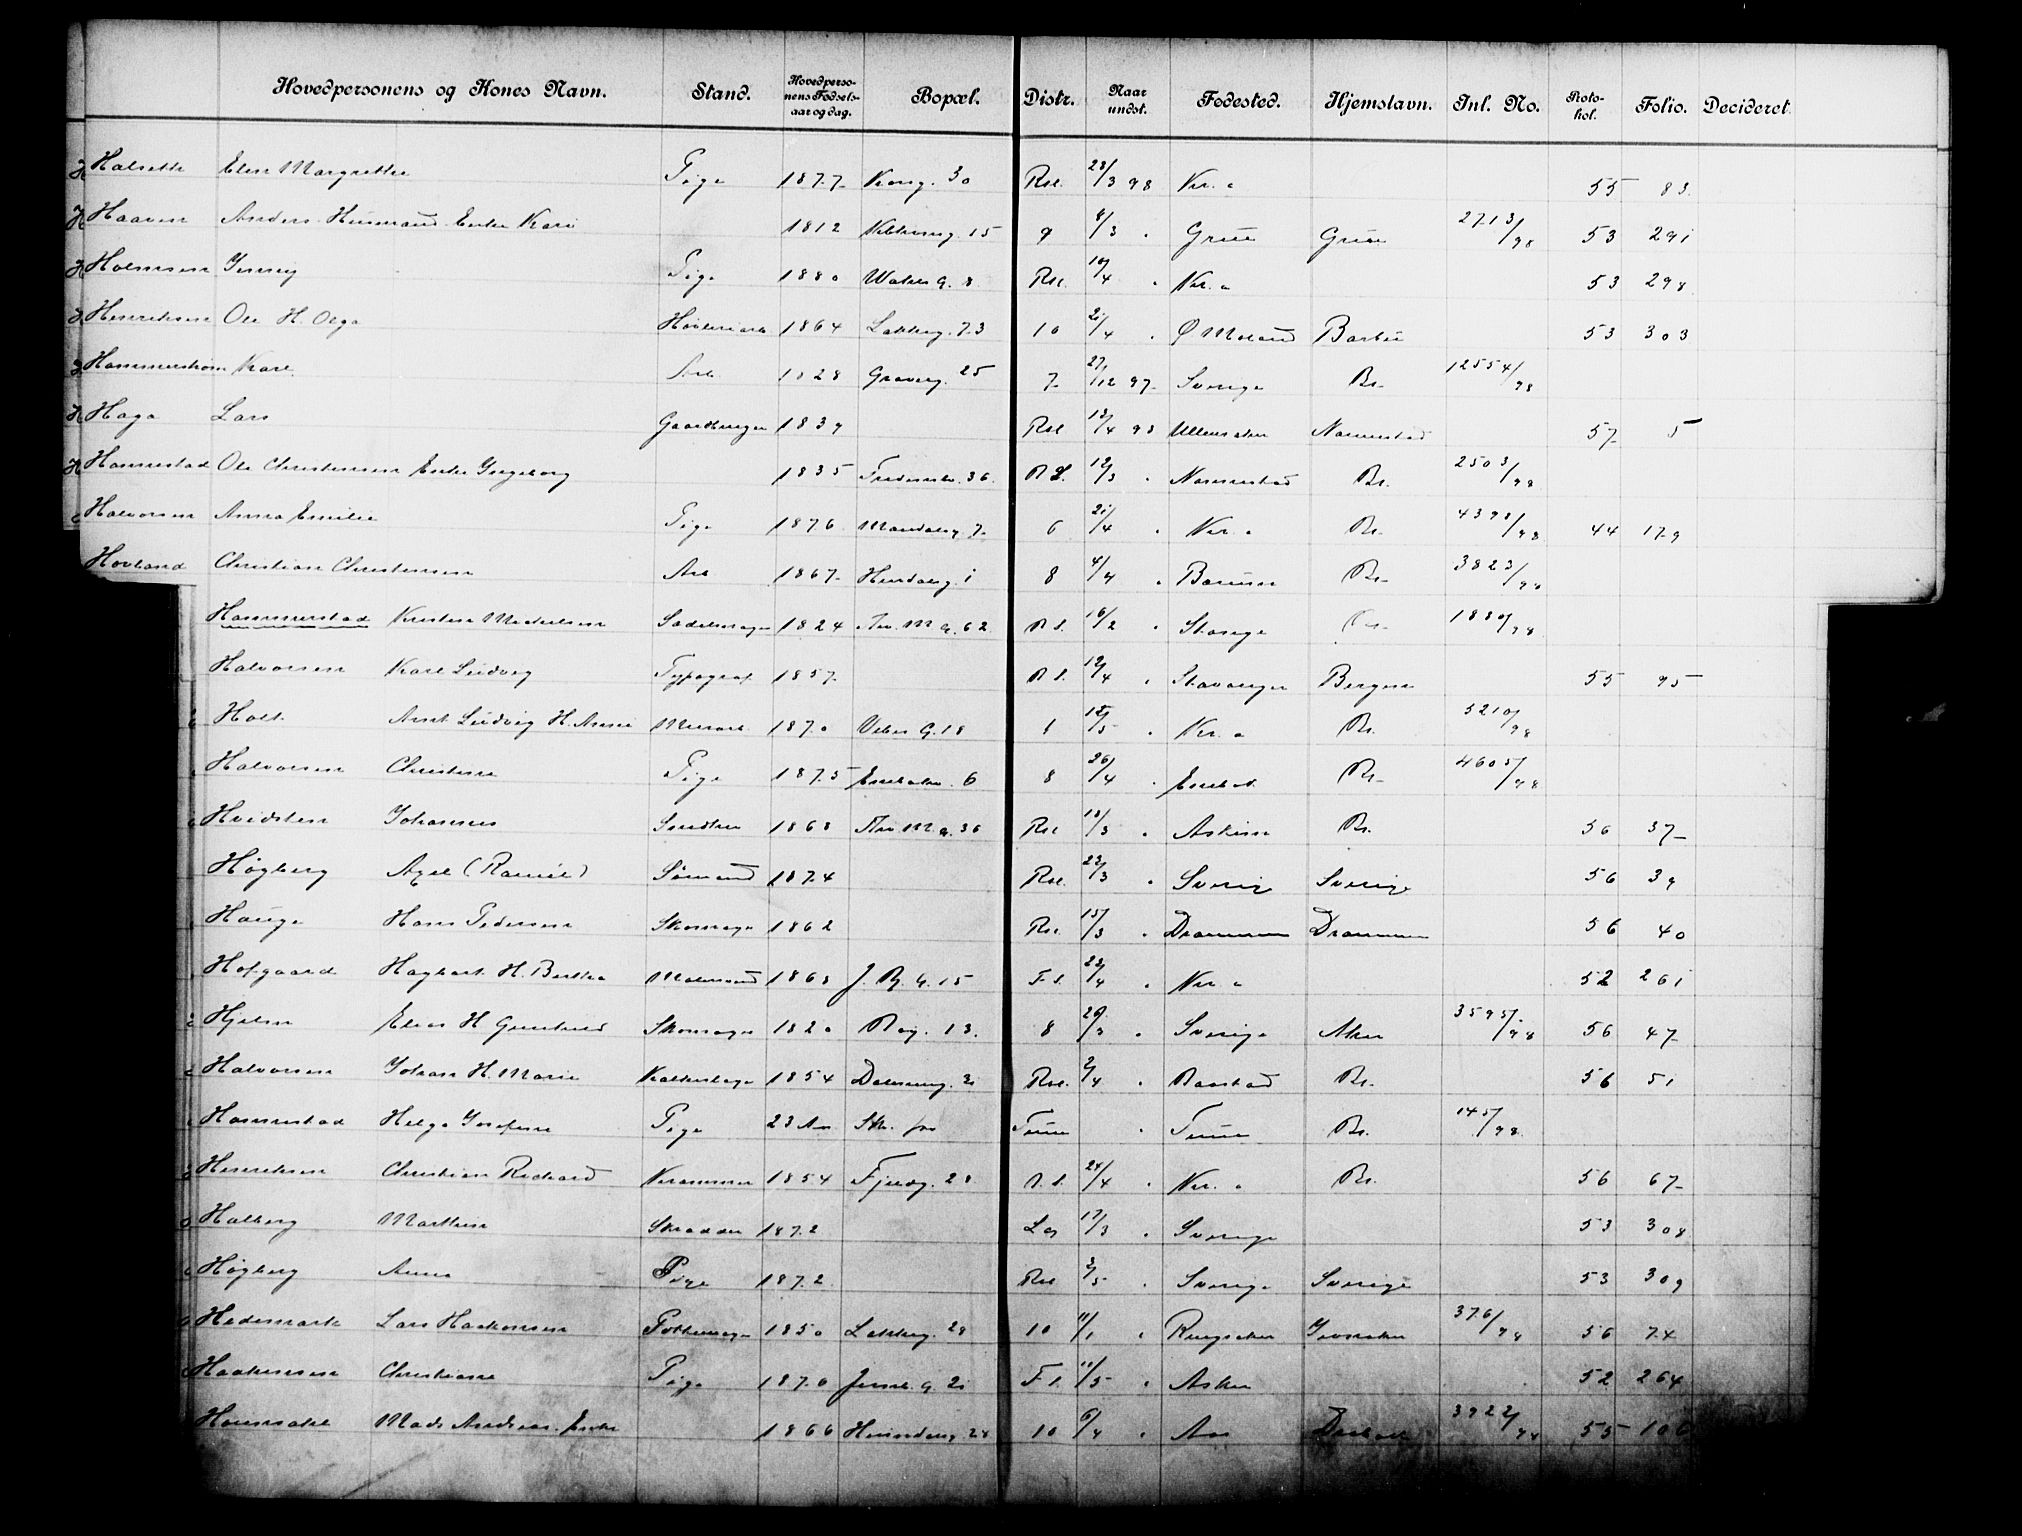 Hovedpersonens og Kones Navn. Stand. Hovedpersonens Fødselsaar og dag. Bopæl. Distr. Naar undst. Fødested. Hjemstavn. Inl. No. Protokol. Folio. Decideret
Halseth Elen Margrethe Pige 1877 Kong. 30 Rst. 28/3 98 Kr. a 55 83
Haaven Anders Husmand Enke Kari 1812 15 9 8/3 " Grue Grue 2713/98 53 291
Holmsen Jenny Pige 1880 Waters G. 8 Rst. 19/4 " Kr. a 53 298
Henriksen Ole H. Olga Høvleriarb 1864 Lakkeg. 73 10 21/4 " Ø Moland Barbu 53 303
Hammerstrøm Karl Arb. 1828 Graverg. 25 7 27/12 97 Sverige Br. 12554/98
Haga Lars Gaardbruger 1839 Rst 13/4 98 Ullensaker Nannestad 57 5
Hannestad Ole Christensen Enke Ingeborg 1835 Fredensbr. 36 R.St. 12/3 " Nannestad Br. 2503/98
Halvorsen Anna Emilie Pige 1876 Mandalsg 7 6 21/4 " Kr. a Br. 4398/98 44 179
Hovland Christian Christensen Arb 1867 1 8 4/4 " Bærum Br. 3823/98
Hammerstad Kristen Mikkelsen Sadelmager 1824 62 R.S. 16/2 " 1880/98
Halvorsen Karl Ludvig Typograf 1857 R.S. 12/4 " Stavanger Bergen 55 95
Holt Arnt Ludvig H. Anna Murarb. 1870 Vibes G. 18 1 12/5 " Kr. a Br. 5210/98
Halvorsen Christine Pige 1875 Enebakv. 6 8 26/4 " Enebak Br. 4605/98
Hvidsten Johannes Smed 1868 36 Rst 18/3 " Askim Br. 56 37
Høgberg Axel Sømand 1874 Rst. 22/3 " Sverig Sverige 56 39
Hauge Hans Pedersen Skomager 1862 Rst. 15/3 " Drammen Drammen 56 40
Hofgaard Hagbart H. Bertha Malersvend 1868 J. B. G. 15 F.S. 22/4 " Kr. a 52 261
Hjelm Elias H Gunhild Skomager 1820 Røg. 13. 8 29/3 " Sverige Aker 3595/98 56 47
Halvorsen Johan H. Marie 1854 Dalsveig. 21 Rst. 2/4 " Raastad Br. 56 51
Hannestad Helga Josefine Pige 23 Aar Tune " Tune Br. 145/98
Henriksen Christian Richard Kræmmer 1854 Fjeldg. 28 R.S. 24/4 " Kr. a Br. 56 67
Halberg Marthin Skrædder 1872 17/3 " Sverige 53 308
Høgberg Anna Pige 1872 Rst 3/5 " Sverige Sverige 53 309
Hedemark Lars Haakonsen Pottemager 1850 Lakkeg. 28 10 11/1 " Ringsaker 376/98 56 74
Haakensen Christiane Pige 1876 21 F.S. 11/5 " Asker 52 264
Mads Andreas. Enke 1866 24 10 6/4 " Aas 3922/98 55 106